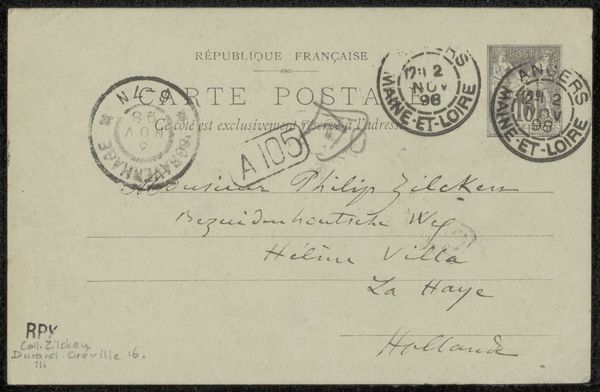 RÉPUBLIQUE FRANÇAISE
CARTE POSTALE
Ce côté est exclusivement réservé à l'adresse
ANGERS
2
NOV
98
MAINE-ET-LOIRE
ANGERS
2
98
MAINE-ET-LOIRE
POSTE
'SGRAVENHAGE
6-7N
NOV
98
A105
Monsieur Philip Zilcken
Bezuidenhoutsche Weg
Hélène Villa
La Haye
Hollande
RPX
Coll. Zilcken
Durand-Gréville 16.